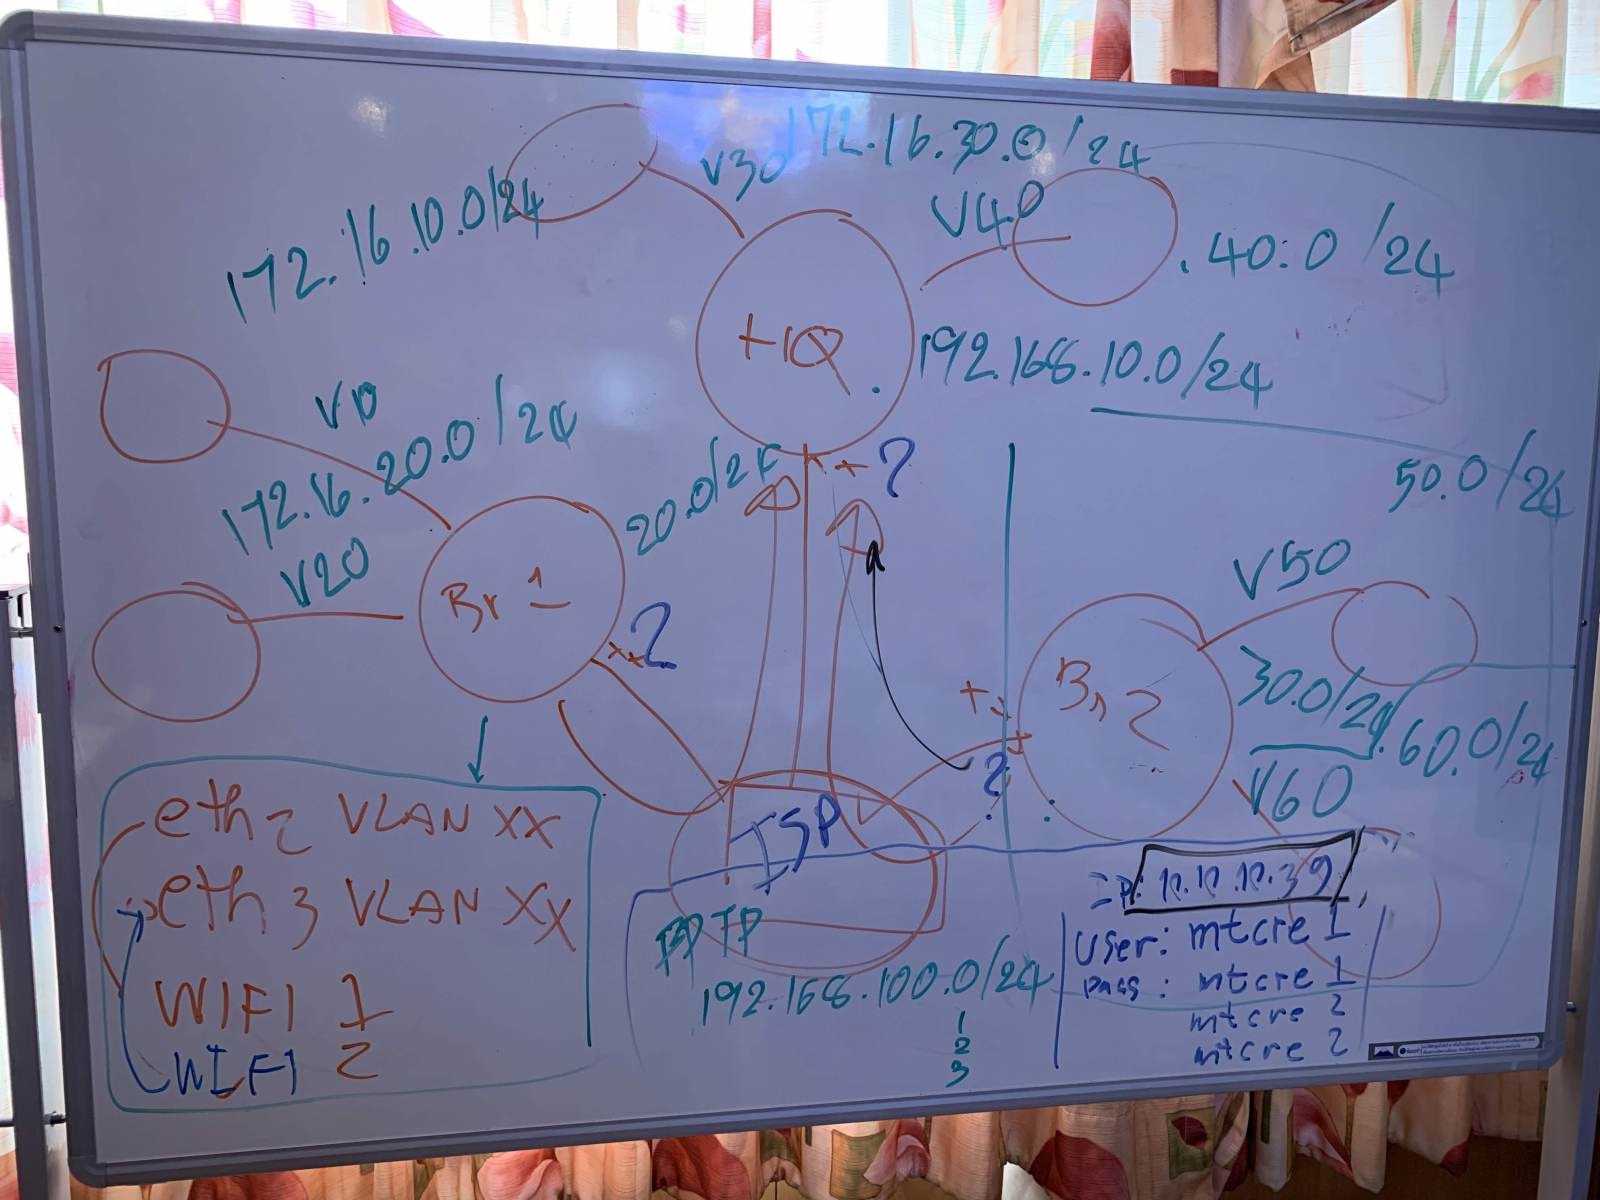 172.16.30.0/24
V30
172.16.10.0/24
V40
.40.0/24
HQ
192.168.10.0/24
V10
172.16.20.0/24
20.0/24
?
50.0/24
V20
V50
Br 1
?
Br 2
30.0/24
.60.0/24
?
V60
eth2 VLAN XX
eth3 VLAN XX
WIFI 1
WIFI 2
ISP
PPTP
192.168.100.0/24
1
2
3
IP: 10.10.10.39
User: mtcre 1
pass: mtcre 1
mtcre 2
mtcre 2